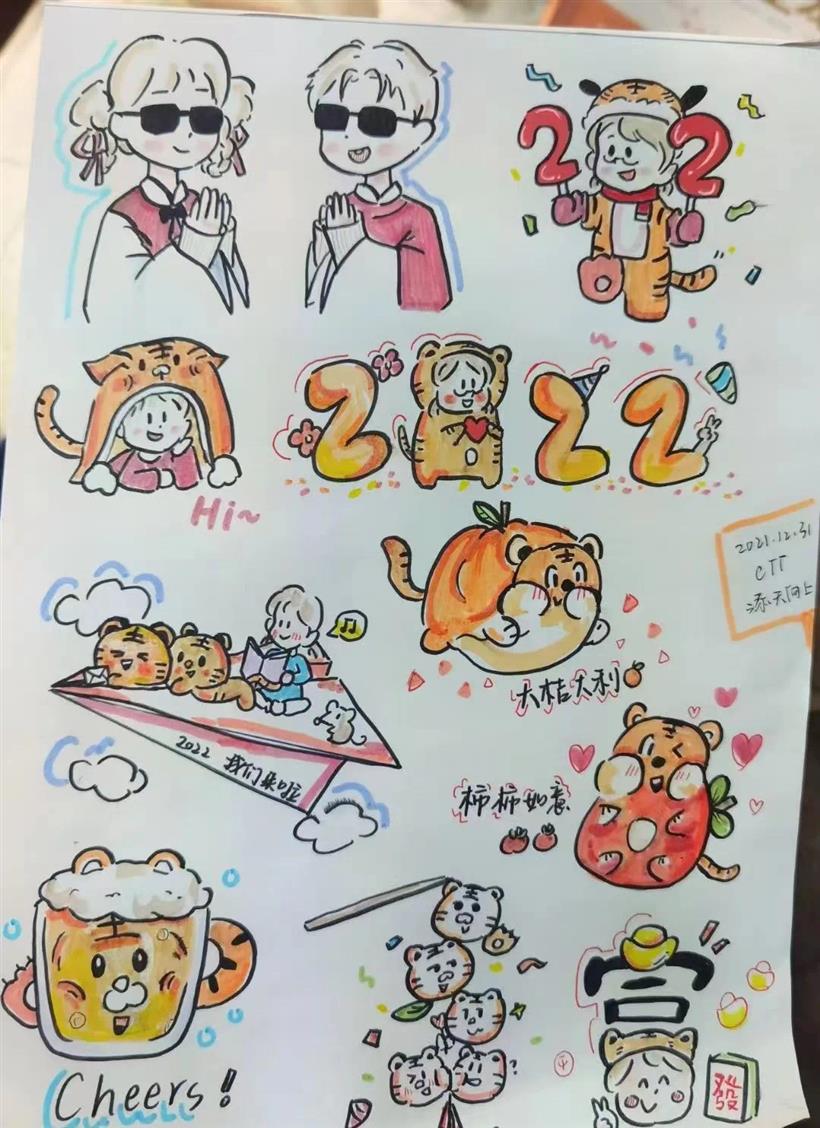 22
Hi~
2 22
2021.12.31
CTT
添天向上
大桔大利
2022 我们来啦
柿柿如意
Cheers!
發